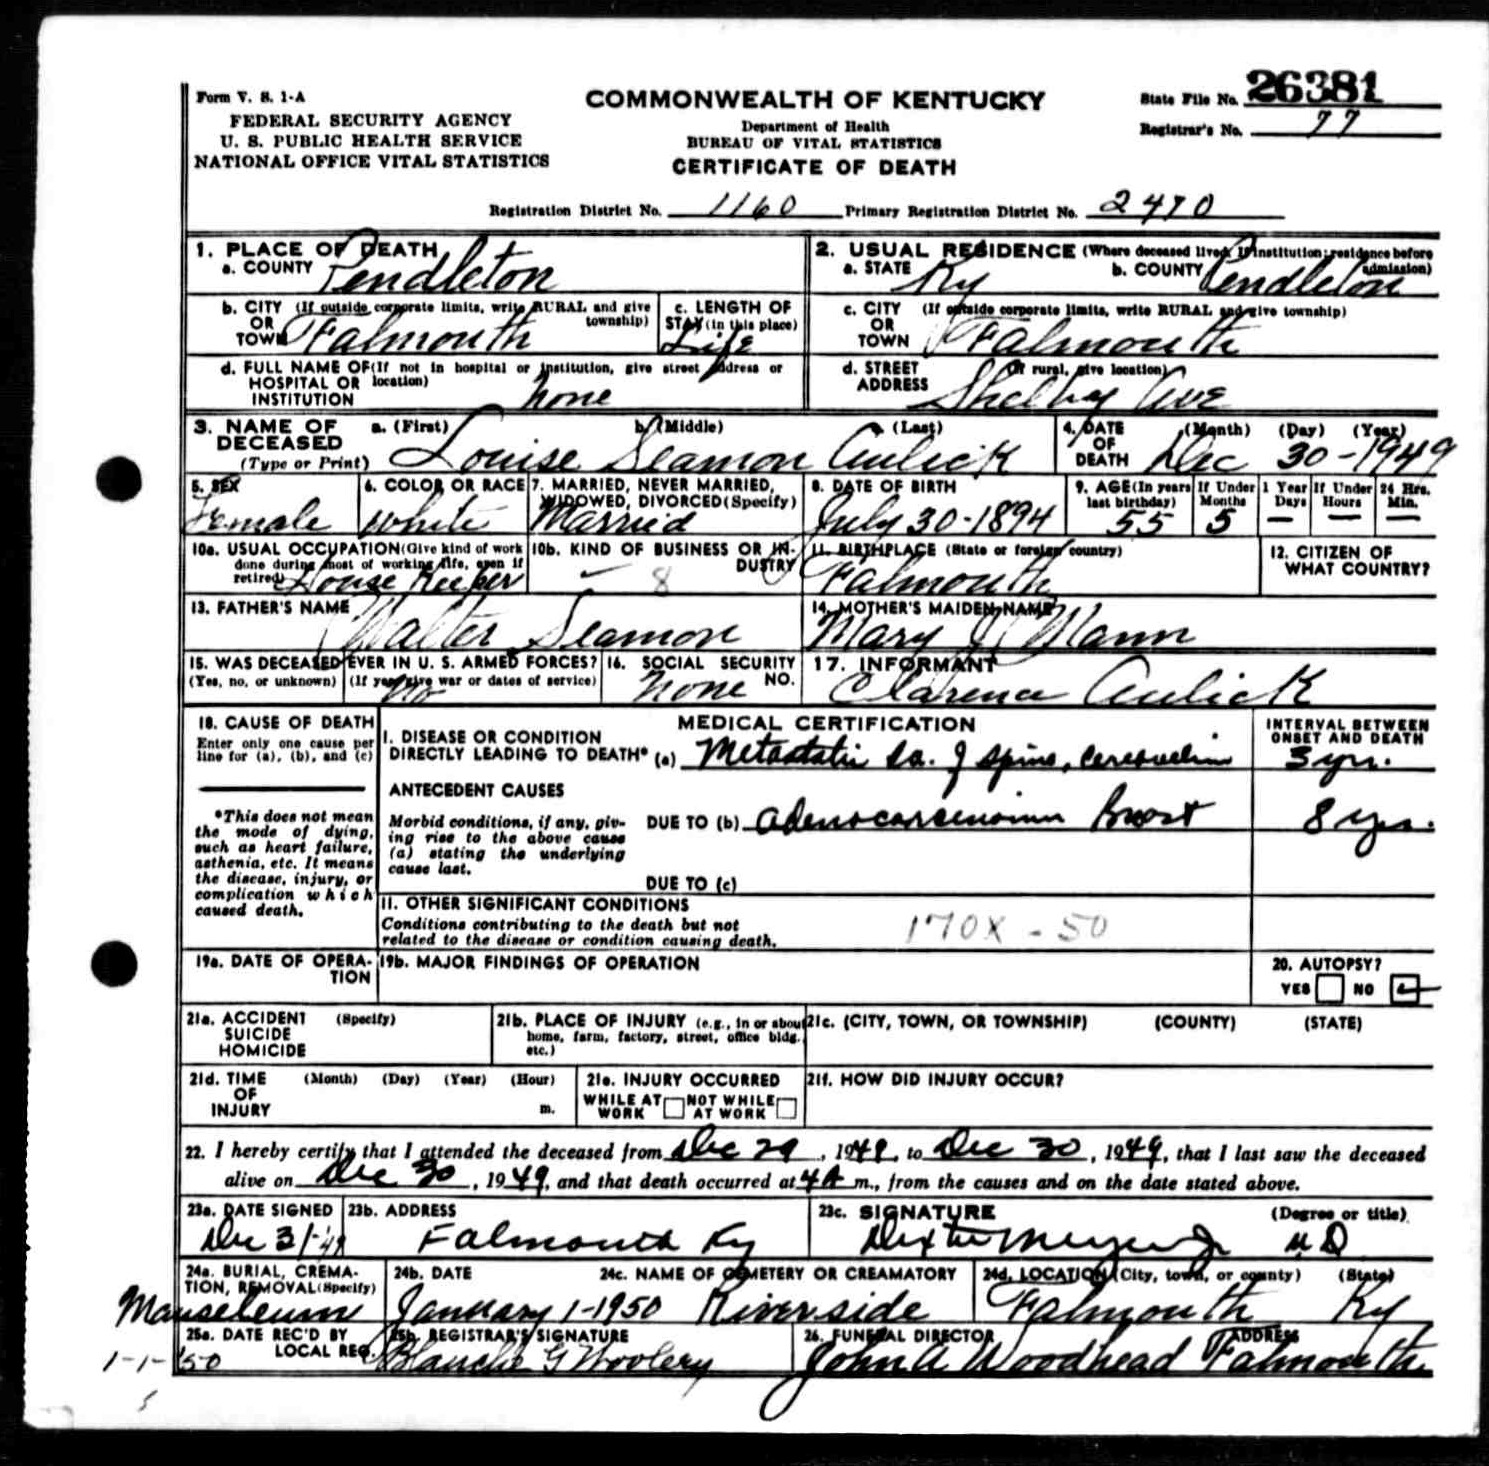 Form V. S. 1-A
FEDERAL SECURITY AGENCY
U. S. PUBLIC HEALTH SERVICE
NATIONAL OFFICE VITAL STATISTICS
COMMONWEALTH OF KENTUCKY
Department of Health
BUREAU OF VITAL STATISTICS
CERTIFICATE OF DEATH
State File No. 26381
Registrar's No. 77
Registration District No. 1160 Primary Registration District No. 2470
1. PLACE OF DEATH
a. COUNTY Pendleton
2. USUAL RESIDENCE (Where deceased lived. If institution: residence before admission)
a. STATE Ky b. COUNTY Pendleton
b. CITY (If outside corporate limits, write RURAL and give township)
OR
TOWN Falmouth
c. LENGTH OF
STAY (in this place)
Life
c. CITY (If outside corporate limits, write RURAL and give township)
OR
TOWN Falmouth
d. FULL NAME OF (If not in hospital or institution, give street address or location)
HOSPITAL OR
INSTITUTION none
d. STREET (If rural, give location)
ADDRESS Shelby Ave
3. NAME OF DECEASED
(Type or Print)
a. (First) b. (Middle) c. (Last)
Louise Seamon Aulick
4. DATE OF DEATH (Month) (Day) (Year)
Dec 30-1949
5. SEX
Female
6. COLOR OR RACE
White
7. MARRIED, NEVER MARRIED, WIDOWED, DIVORCED (Specify)
Married
8. DATE OF BIRTH
July 30-1894
9. AGE (In years last birthday)
55
If Under 1 Year
Months Days
5 —
If Under 24 Hrs.
Hours Min.
— —
10a. USUAL OCCUPATION (Give kind of work done during most of working life, even if retired)
House Keeper
10b. KIND OF BUSINESS OR INDUSTRY
8
11. BIRTHPLACE (State or foreign country)
Falmouth
12. CITIZEN OF WHAT COUNTRY?
13. FATHER'S NAME
Walter Seamon
14. MOTHER'S MAIDEN NAME
Mary J Mann
15. WAS DECEASED EVER IN U. S. ARMED FORCES?
(Yes, no, or unknown) (If yes, give war or dates of service)
No
16. SOCIAL SECURITY NO.
none
17. INFORMANT
Clarence Aulick
18. CAUSE OF DEATH
Enter only one cause per line for (a), (b), and (c)
*This does not mean the mode of dying, such as heart failure, asthenia, etc. It means the disease, injury, or complication which caused death.
MEDICAL CERTIFICATION
INTERVAL BETWEEN ONSET AND DEATH
I. DISEASE OR CONDITION
DIRECTLY LEADING TO DEATH* (a) Metastatic Ca. of spine, cerebellum 3 yrs.
ANTECEDENT CAUSES
Morbid conditions, if any, giving rise to the above cause (a) stating the underlying cause last.
DUE TO (b) Adenocarcinoma Breast 8 yrs.
DUE TO (c)
II. OTHER SIGNIFICANT CONDITIONS
Conditions contributing to the death but not related to the disease or condition causing death.
170X - 50
19a. DATE OF OPERATION
19b. MAJOR FINDINGS OF OPERATION
20. AUTOPSY?
YES NO
21a. ACCIDENT (Specify)
SUICIDE
HOMICIDE
21b. PLACE OF INJURY (e.g., in or about home, farm, factory, street, office bldg. etc.)
21c. (CITY, TOWN, OR TOWNSHIP) (COUNTY) (STATE)
21d. TIME OF INJURY (Month) (Day) (Year) (Hour)
m.
21e. INJURY OCCURRED
WHILE AT WORK NOT WHILE AT WORK
21f. HOW DID INJURY OCCUR?
22. I hereby certify that I attended the deceased from Dec 29, 1949, to Dec 30, 1949, that I last saw the deceased
alive on Dec 30, 1949, and that death occurred at 4A m., from the causes and on the date stated above.
23a. DATE SIGNED
Dec 31-'49
23b. ADDRESS
Falmouth Ky
23c. SIGNATURE (Degree or title)
Dexter Meyer Jr M D
24a. BURIAL, CREMATION, REMOVAL (Specify)
Mauseleum
24b. DATE
January 1-1950
24c. NAME OF CEMETERY OR CREAMATORY
Riverside
24d. LOCATION (City, town, or county) (State)
Falmouth Ky
25a. DATE REC'D BY LOCAL REG.
1-1-'50
25b. REGISTRAR'S SIGNATURE
Blanche G Woolery
26. FUNERAL DIRECTOR ADDRESS
John A Woodhead Falmouth